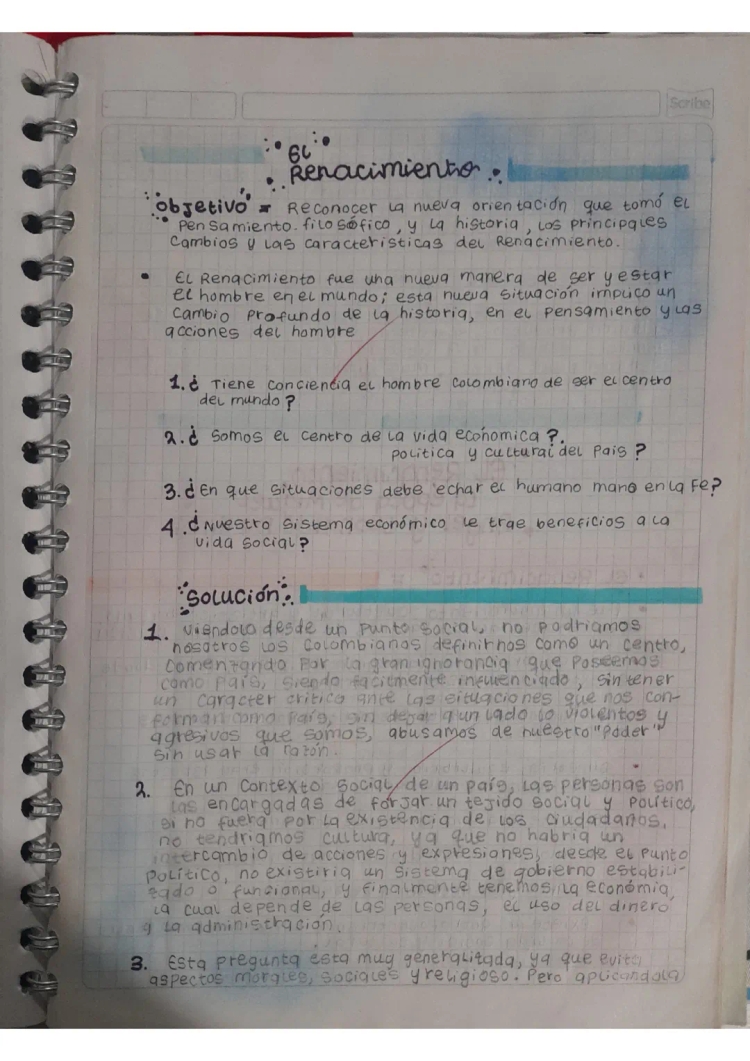 Scribe
El
Renacimiento
Objetivo = Reconocer la nueva orientación que tomó el
Pensamiento filosófico, y la historia, los principales
Cambios y las características del Renacimiento.
• El Renacimiento fue una nueva manera de ser y estar
el hombre en el mundo; esta nueva situación impuco un
Cambio profundo de la historia, en el pensamiento y las
acciones del hombre
1. ¿ Tiene conciencia el hombre colombiano de ser el centro
del mundo?
2. ¿ Somos el centro de la vida económica ?.
politica y cultural del Pais ?
3. ¿ En que situaciones debe echar el humano mano en la Fe?
4. ¿ Nuestro Sistema económico le trae beneficios a la
vida social?
Solución
1. Viéndolo desde un punto social, no podríamos
nosotros los colombianos definirnos como un centro,
Comenzando Por la gran ignorancia que Poseemos
como País, siendo facilmente influenciado, sin tener
un carácter crítico ante las situaciones que nos con-
forman como País, sin dejar a un lado lo violentos y
agresivos que somos, abusamos de nuestro "Poder"
Sin usar la razón.
2. En un Contexto Social, de un país, las personas son
las encargadas de forjar un tejido social y Político,
si no fuera Por la existencia de los ciudadanos,
no tendríamos cultura, ya que no habría un
intercambio de acciones y expresiones, desde el punto
político, no existiría un sistema de gobierno estabili-
zado o funcional, y finalmente tenemos la economía
la cual depende de las personas, el uso del dinero
y la administración.
3. Esta pregunta esta muy generalizada, ya que evita
aspectos morales, sociales y religioso. Pero aplicandola